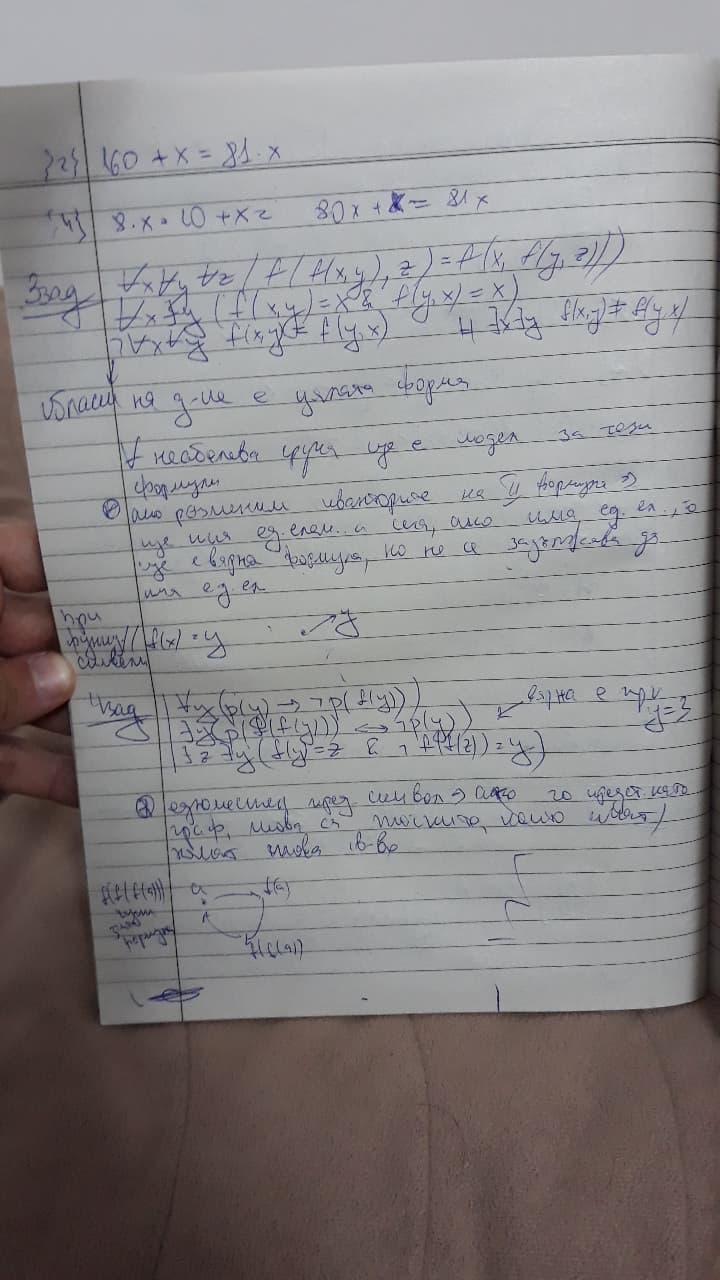 160 + x = 81.x
8.x.10 + x = 80x + x = 81x
3 зад ∀x∀y∀z(f(f(x,y),z)=f(x,f(y,z)))
∀x∃y(f(x,y)=x & f(y,x)=x)
¬∀x∀y f(x,y)= f(y,x) ∃x∃y f(x,y)≠f(y,x)
на д-ие е цялата форма
∀ неабелева група ще е модел за тези
формули
ако разменим кванторите на II формула ⇒
ще има ед. елем. и сега, ако има ед. ел., то
ще е вярна формула, но не се задължава да
има ед ел
при
f(x) = y y
4 зад ∀y(p(y) → ¬p(f(y))) вярна е при
∃y(p(f(f(y))) ↔ ¬p(y)) y=3
∃z∃y(f(y)=z & ¬f(f(z))=y)
едноместен пред. символ ⇒ ако го предст. като
граф, това са точките, които имат/
нямат това св-во
f(f(f(a))) a f(a)
формула f(f(a))